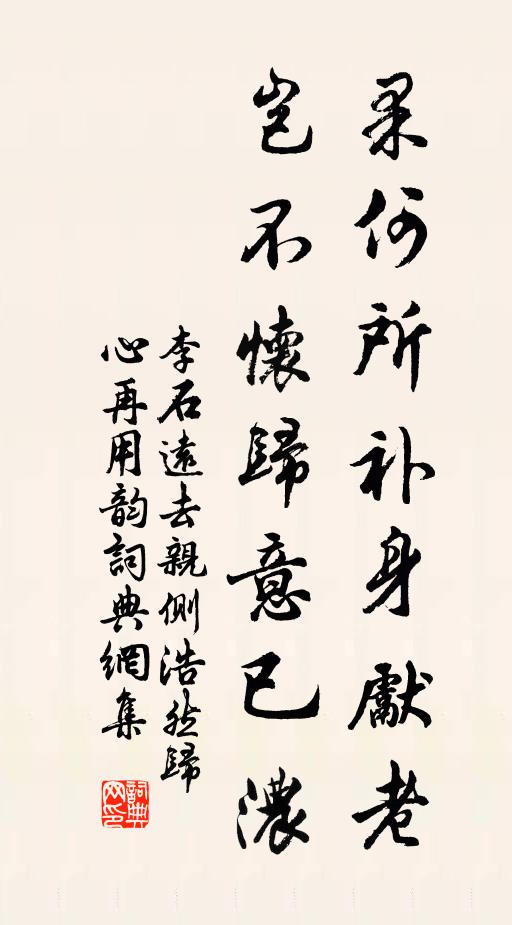 果何所补身獻老
岂不懷歸意已濃
李石遠去親側浩然歸
心再用韵詞典網集
詞典
网印